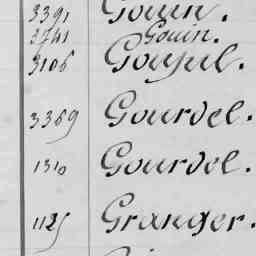 3391 Gouin.
3741 Gouin.
3106 Goupil.
3369 Gourdel.
1310 Gourdel.
1125 Granger.